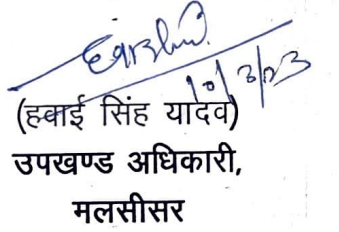 10/3/23
(हवाई सिंह यादव)
उपखण्ड अधिकारी,
मलसीसर